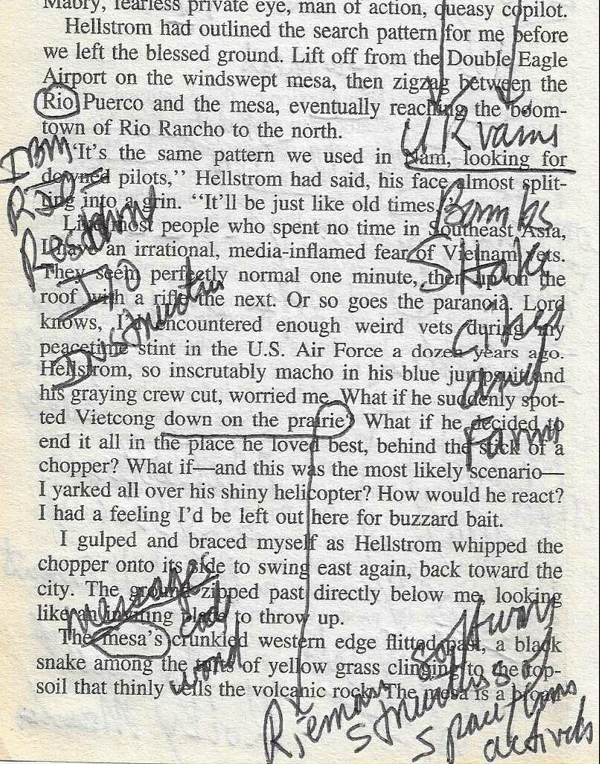 Mabry, fearless private eye, man of action, queasy copilot.
Hellstrom had outlined the search pattern for me before
we left the blessed ground. Lift off from the Double Eagle
Airport on the windswept mesa, then zigzag between the
Rio Puerco and the mesa, eventually reaching the boom-
town of Rio Rancho to the north.
"It's the same pattern we used in Nam, looking for
downed pilots," Hellstrom had said, his face almost split-
ting into a grin. "It'll be just like old times."
Like most people who spent no time in Southeast Asia,
I have an irrational, media-inflamed fear of Vietnam vets.
They seem perfectly normal one minute, then up on the
roof with a rifle the next. Or so goes the paranoia. Lord
knows, I'd encountered enough weird vets during my
peacetime stint in the U.S. Air Force a dozen years ago.
Hellstrom, so inscrutably macho in his blue jumpsuit and
his graying crew cut, worried me. What if he suddenly spot-
ted Vietcong down on the prairie? What if he decided to
end it all in the place he loved best, behind the stick of a
chopper? What if—and this was the most likely scenario—
I yarked all over his shiny helicopter? How would he react?
I had a feeling I'd be left out here for buzzard bait.
I gulped and braced myself as Hellstrom whipped the
chopper onto its side to swing east again, back toward the
city. The ground zipped past directly below me, looking
like an inviting place to throw up.
The mesa's crunkled western edge flitted past, a black
snake among the tufts of yellow grass clinging to the top-
soil that thinly veils the volcanic rock. The mesa is a
IBM
I/O
Bombs
and
Farms
message
word
software